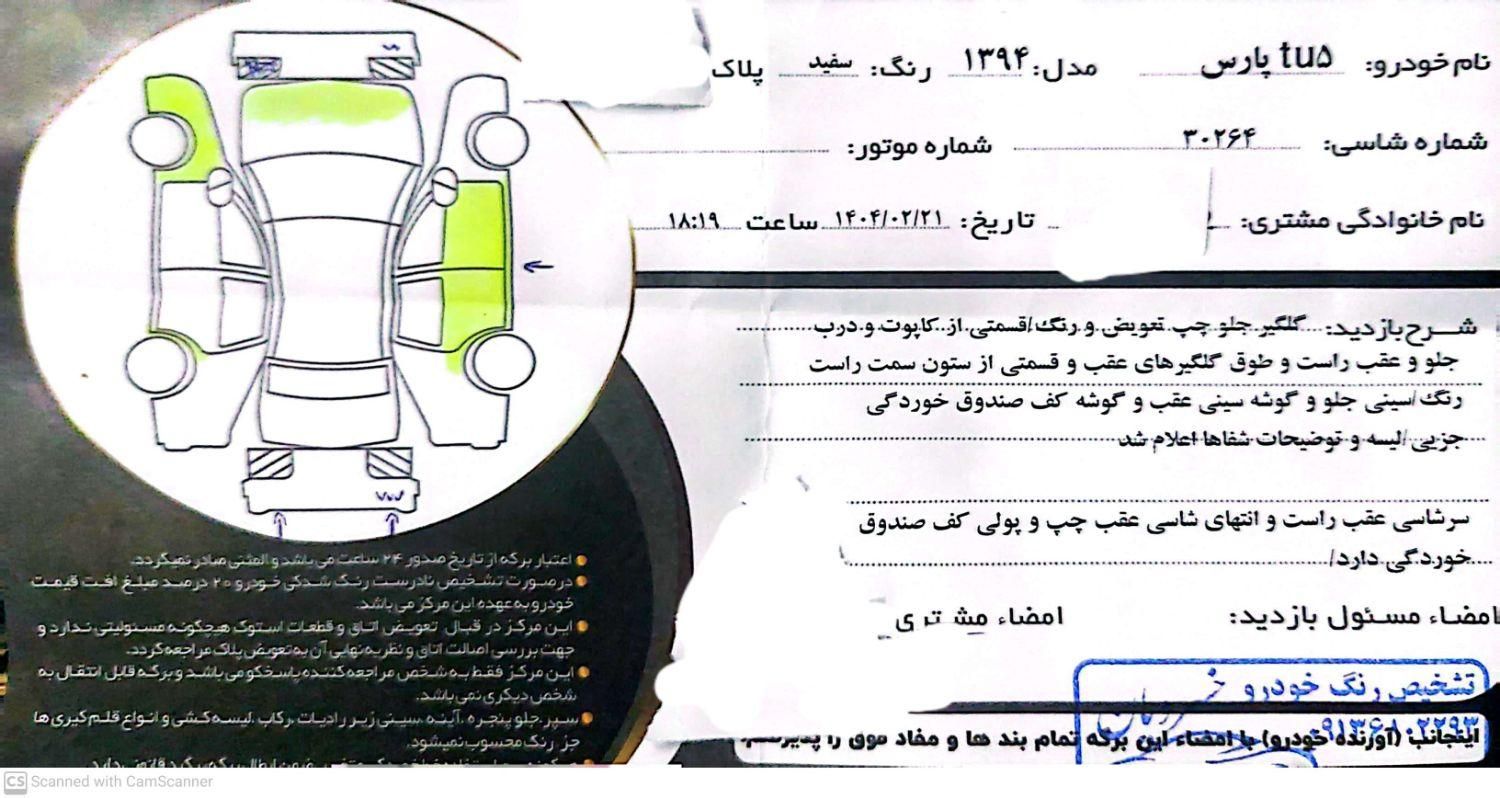 نام خودرو: پارس tu۵ مدل: ۱۳۹۴ رنگ: سفید پلاک
شماره شاسی: ۳۰۲۶۴ شماره موتور:
نام خانوادگی مشتری: تاریخ: ۱۴۰۴/۰۲/۲۱ ساعت ۱۸:۱۹
شرح بازدید: گلگیر جلو چپ تعویض و رنگ/قسمتی از کاپوت و درب
جلو و عقب راست و طوق گلگیرهای عقب و قسمتی از ستون سمت راست
رنگ/سینی جلو و گوشه سینی عقب و گوشه کف صندوق خوردگی
جزیی/لیسه و توضیحات شفاها اعلام شد
سرشاسی عقب راست و انتهای شاسی عقب چپ و پولی کف صندوق
خوردگی دارد/
امضاء مسئول بازدید: امضاء مشتری
تشخیص رنگ خودرو
اینجانب (آورنده خودرو) با امضاء این برگه تمام بند ها و مفاد فوق را
اعتبار برگه از تاریخ صدور ۲۴ ساعت می باشد و المثنی صادر نمیگردد.
درصورت تشخیص نادرست رنگ شدگی خودرو ۲۰ درصد مبلغ افت قیمت
خودرو به عهده این مرکز می باشد.
این مرکز در قبال تعویض اتاق و قطعات استوک هیچگونه مسئولیتی ندارد و
جهت بررسی اصالت اتاق و نظریه نهایی آن به تعویض پلاک مراجعه گردد.
این مرکز فقط به شخص مراجعه کننده پاسخگو می باشد و برگه قابل انتقال به
شخص دیگری نمی باشد.
سپر، جلو پنجره، آینه، سینی زیر رادیات، رکاب، لیسه کشی و انواع قلم گیری ها
جز رنگ محسوب نمیشود.
CS Scanned with CamScanner